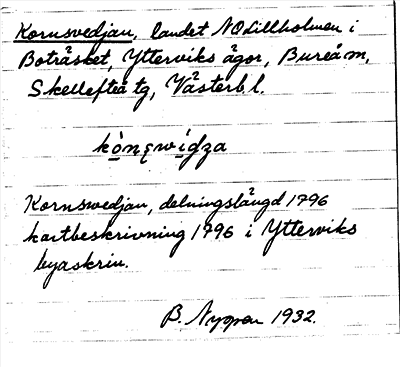 Kornsvedjan, landet NO Lillholmen i
Boträsket, Ytterviks ägor, Bureå sn,
Skellefteå tg, Västerb l.
kòn̨swídza
Kornswedjan, delningslängd 1796
kartbeskrivning 1796 i Ytterviks
byaskrin.
B. 1932.